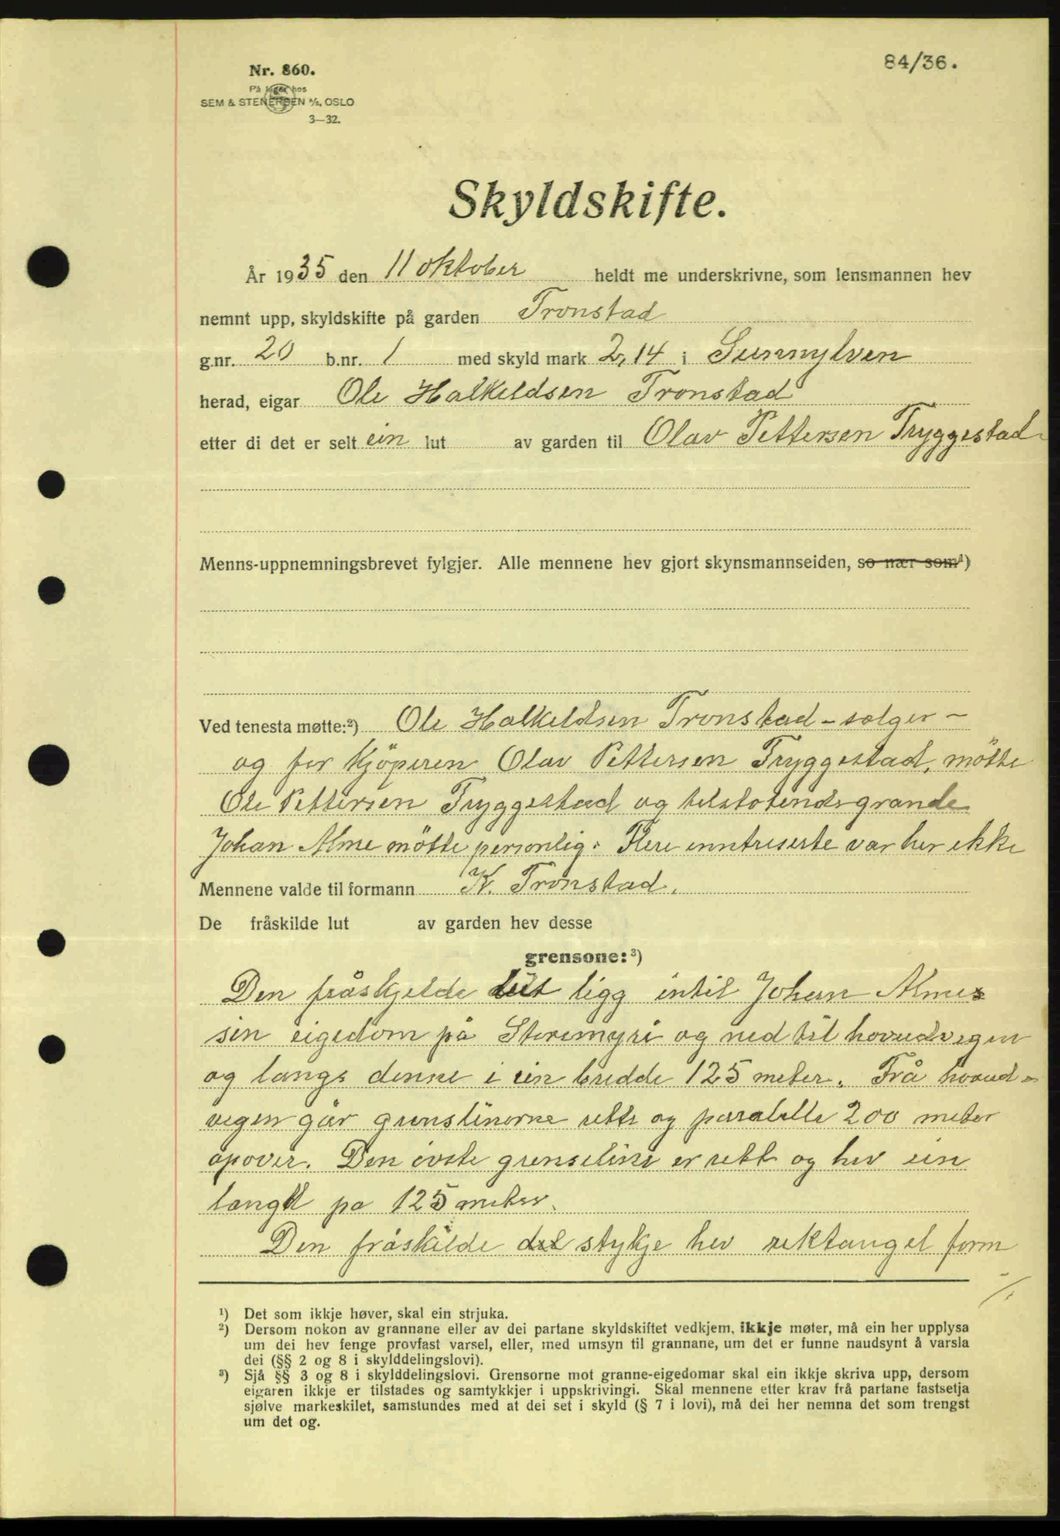 84/36.
Nr. 860.
På lager hos
SEM & STENERSEN A/S, OSLO
3—32.
Skyldskifte.
År 1935 den 11 oktober heldt me underskrivne, som lensmannen hev
nemnt upp, skyldskifte på garden Tronstad
g.nr. 20 b.nr. 1 med skyld mark 2,14 i Sunnylven
herad, eigar Ole Halkeldsen Tronstad
etter di det er selt ein lut av garden til Olav Pettersen Tryggestad
Menns-uppnemningsbrevet fylgjer. Alle mennene hev gjort skynsmannseiden, so nær som¹)
Ved tenesta møtte:²) Ole Halkeldsen Tronstad – selger –
og for kjöperen Olav Pettersen Tryggestad, mötte
Ole Pettersen Tryggestad og tilstøtende grande
Johan Alme mötte personlig. Flere inntreserte var her ikke
Mennene valde til formann K. Tronstad.
De fråskilde lut av garden hev desse
grensone:³)
Den fråskjelde lut ligg intil Johan Almes
sin eigedom på Storemyri og ned til hovudvegen
og langs denne i ein bredde 125 meter. Frå hovud-
vegen går grenslinorne rette og paralelle 200 meter
opover. Den övste grenseline er rett og hev ein
langd på 125 meter.
Den fråskilde del stykje hev rektangel form
⁄.
¹) Det som ikkje høver, skal ein strjuka.
²) Dersom nokon av grannane eller av dei partane skyldskiftet vedkjem, ikkje møter, må ein her upplysa
um dei hev fenge provfast varsel, eller, med umsyn til grannane, um det er funne naudsynt å varsla
dei (§§ 2 og 8 i skylddelingslovi).
³) Sjå §§ 3 og 8 i skylddelingslovi. Grensorne mot granne-eigedomar skal ein ikkje skriva upp, dersom
eigaren ikkje er tilstades og samtykkjer i uppskrivingi. Skal mennene etter krav frå partane fastsetja
sjølve markeskilet, samstundes med at dei set i skyld (§ 7 i lovi), må dei her nemna det som trengst
um det og.